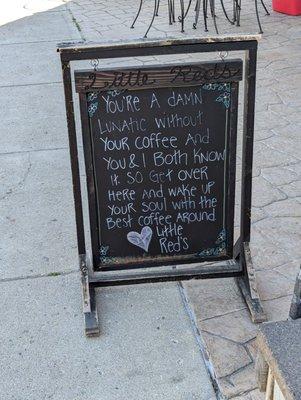 2 Little Reds
You're A damn
Lunatic without
Your Coffee And
You & I Both Know
It. So Get over
Here and wake up
Your soul with the
Best coffee around
Little
Red's